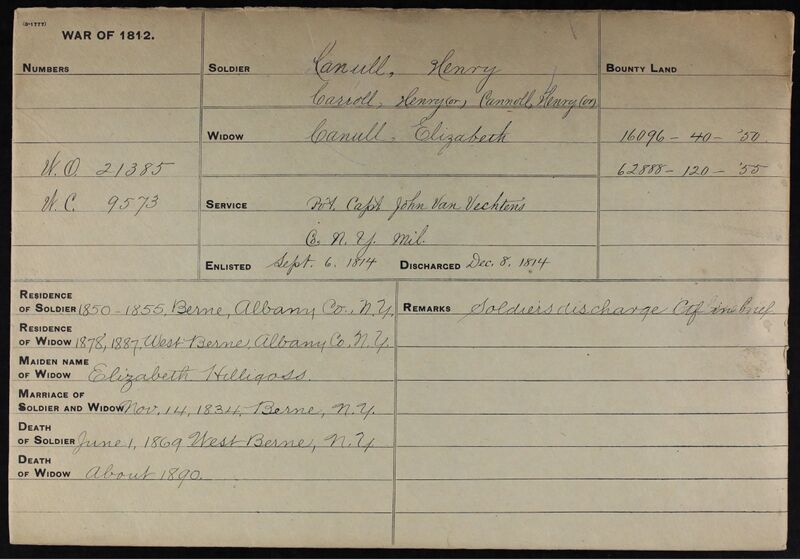 (3-1777)
WAR OF 1812.
NUMBERS
W.O. 21385
W.C. 9573
SOLDIER Canull, Henry
Carroll, Henry (or) Cannoll, Henry (or)
WIDOW Canull, Elizabeth
SERVICE Pvt. Capt. John Van Vechten's
Co. N.Y. Mil.
ENLISTED Sept. 6, 1814 DISCHARGED Dec. 8, 1814
BOUNTY LAND
16096 - 40 - '50
62888 - 120 - '55
RESIDENCE
OF SOLDIER 1850-1855, Berne, Albany Co., N.Y.
RESIDENCE
OF WIDOW 1878, 1887, West Berne, Albany Co., N.Y.
MAIDEN NAME
OF WIDOW Elizabeth Hilligoss.
MARRIAGE OF
SOLDIER AND WIDOW Nov. 14, 1834, Berne, N.Y.
DEATH
OF SOLDIER June 1, 1869 West Berne, N.Y.
DEATH
OF WIDOW About 1890.
REMARKS Soldiers discharge Ctf in brief.